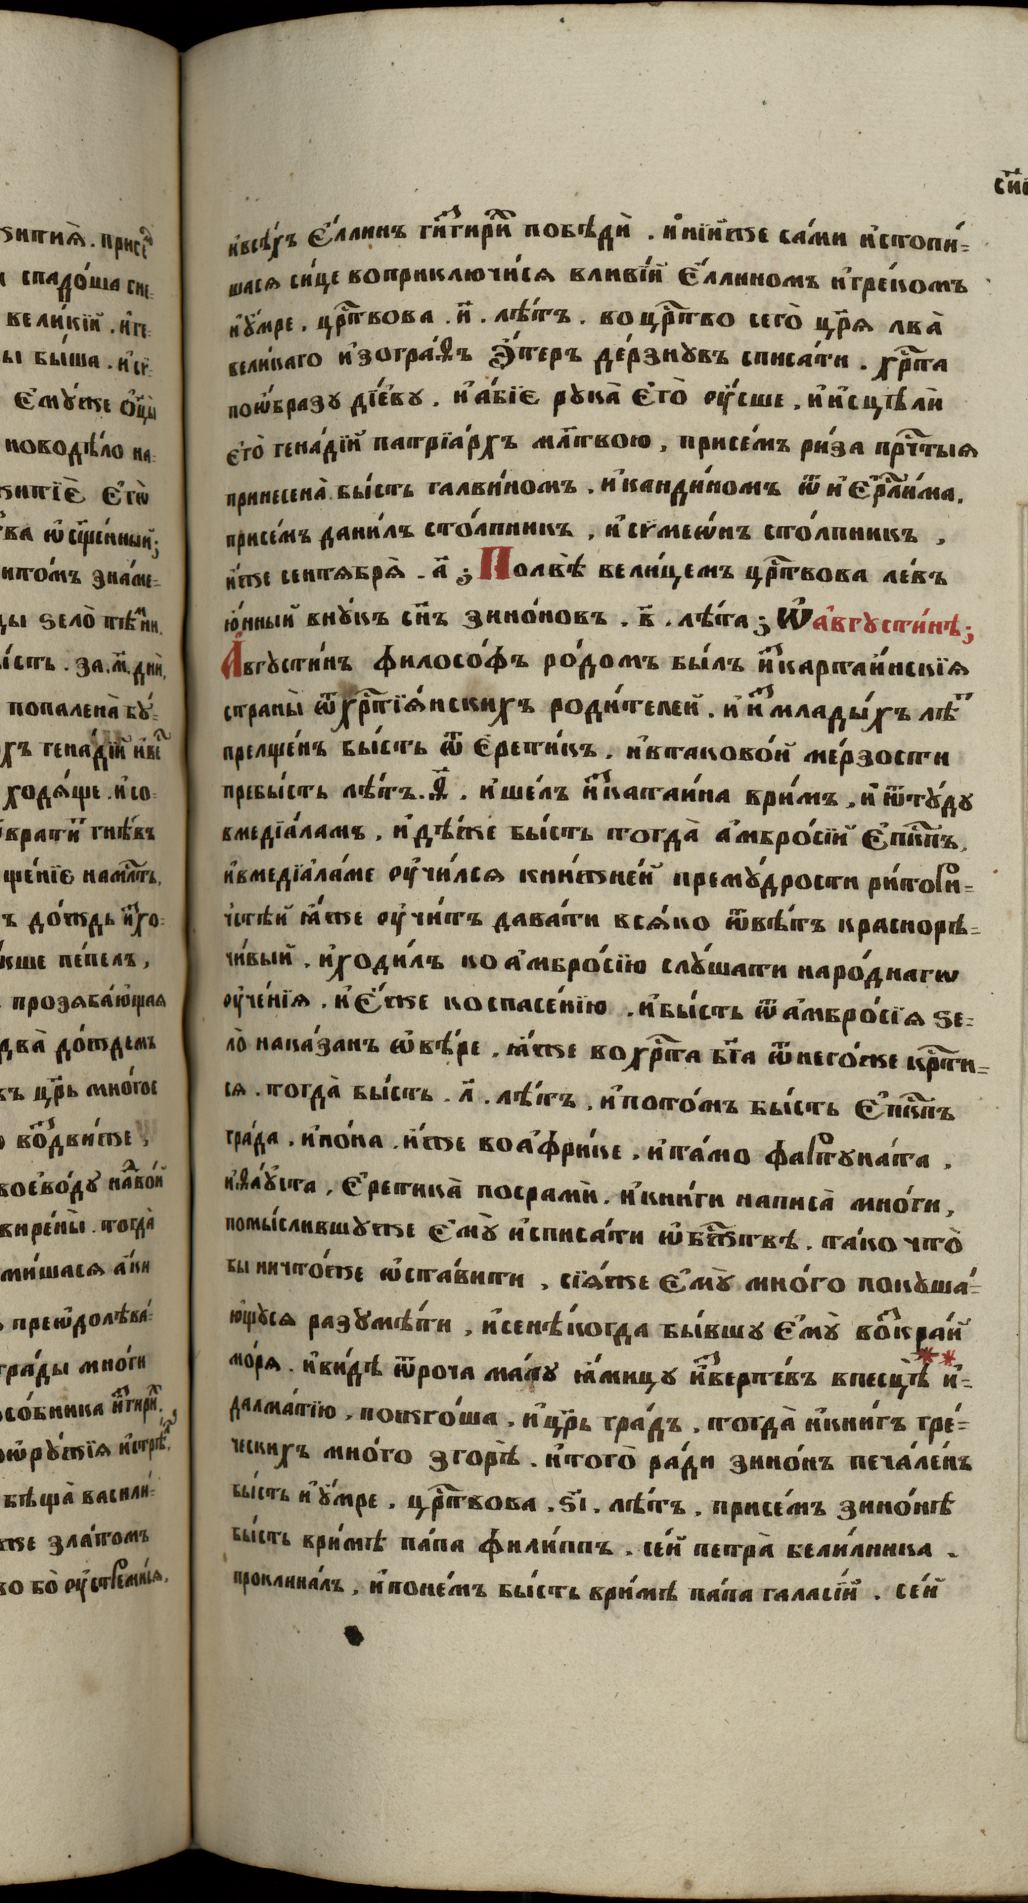 зития̀. присе́
спадо́ша сне
вели́кїй. и҆ге
ы бы́ша. и҆
Є҆му́же Ѻ҆ц҃ы
поводѣ́ло на
житїѐ Є҆гѡ̀
ва ѡ҆сщ҃е́нный;
итомъ зна́ме
цы ѕело̀ тѣ́мни
і́сть. за. м҃. днїй,
попалена̀ бу
хъ гена́дїй и҆ве
ходя́ще. и҆со
врати гнѣ́въ
ще́нїе нам҃лть,
ъ до́ждь и҆схо
кше пе́пелъ,
прозяба́ющая
два̀ до́ждемъ
въ цр҃ь мно́гое
во́движе,
воево́ду на́вой
вире́ны̀. тогда̀
мишася а҆́ки
преѡ҆долѣва
гра́ды мно́ги
со́бника и҆гири
ѡ҆ру́жїя и҆стрѣ
бѣща̀ васили
же зла́томъ
во бо̀ ѹ҆стремнія,
сн҃и
и҆всѣ́хъ Є҆́ллинъ ги́гири побѣдѝ. и҆нїи́же са́ми и҆стопи-
шася си́це воприключи́ся вливїи Є҆́ллиномъ и҆гре́комъ
и҆у҆́мре. цр҃твова. и҃. лѣ́тъ. во цр҃тво сего̀ цр҃я лва̀
вели́каго и҆зогра́ѳъ Э҆́теръ де́рзнувъ списа́ти. хр҃та
поѡ҆́бразу дїе́ву. и҆а҆́бїе рука̀ Є҆го̀ ѹ҆́сше, и҆и҆сцѣлѝ
є҆го̀ гена́дїй патрїа́рхъ мл҃твою, присе́мъ ри́за пр҃чтыя
принесена̀ бы́сть галви́номъ. и҆канди́номъ ѿ и҆Є҆р҃ли́ма.
присе́мъ дани́лъ сто́лпникъ, и҆сѵмео́нъ сто́лпникъ,
и҆́же сентября̀. а҃; Полвѣ́ вели́цемъ цр҃твова ле́въ
ю҆́нный вну́къ сн҃ъ зино́новъ. в҃. лѣ́та; Ѡ҆а҆вгусти́нѣ;
А҆вгусти́нъ филосо́фъ ро́домъ бы́лъ и҆скартаи́нскїя
страны̀ ѿхр҃тїя́нскихъ роди́телей. и҆измлады́хъ лѣ́
прелще́нъ бы́сть ѿ Є҆рети́къ. и҆втаково́й ме́рзости
пребы́сть лѣ́тъ. ѳ҃. и҆ше́лъ искатаи́наври́мъ, и҆ѿту́ду
вмедїа́ламъ, и҆дѣ́же бы́сть тогда̀ а҆мбро́сїй Є҆пкпъ,
и҆вмедїа́ламе ѹ҆чи́лся кни́жней прему́дрости ритори-
чстѣй ꙗ҆́же ѹ҆чи́тъ дава́ти вся́ко ѿвѣ́тъ краснорѣ-
чи́вый. и҆ходи́лъ ко а҆мбро́сїю слу́шати наро́днагѡ
ѹ҆че́нїя. и҆Є҆́же коспасе́нїю. и҆бы́сть ѿа҆мбро́сїя ѕе-
ло̀ нака́занъ ѡ҆вѣ́ре. ꙗ҆́же во хр҃та бг҃а ѿнего́же кр҃ти-
ся. тогда̀ бы́сть. л҃. лѣ́тъ, и҆пото́мъ бы́сть Є҆пкпъ
гра́да. и҆по́на. и҆́же во а҆́фрике. и҆та́мо фартуна́та.
и҆ѳа́уста, Є҆ретика̀ посрамѝ. и҆кни́ги написа̀ мно́ги,
помы́слившуже Є҆му̀ и҆списа́ти ѡ҆бж҃твѣ́. та́ко что̀
бы ничто́же ѡ҆ста́вити, сїя́же Є҆му̀ мно́го покуша́-
ю҆щуся разумѣ́ти, и҆сенѣ́когда бы́вшу Є҆му̀ во́скрай
мо́ря. и҆ви́дѣ ѿроча ма́лу ꙗ҆́мицу и҆зверте́въ впесцѣ̀ и҆-
далма́тїю, пожго́ша, и҆цр҃ь гра́дъ, тогда̀ и҆кни́гъ гре́-
ческихъ мно́го згорѣ̀. и҆того̀ ра́ди зино́нъ печа́ленъ
бы́сть и҆у҆́мре, цр҃твова. ѕ҃і. лѣ́тъ, присе́мъ зино́нѣ
бы́сть ври́мѣ па́па фили́ппъ. се́й петра̀ бели́лника.
проклина́лъ, и҆поне́мъ бы́сть ври́мѣ па́па галасі́й. се́й